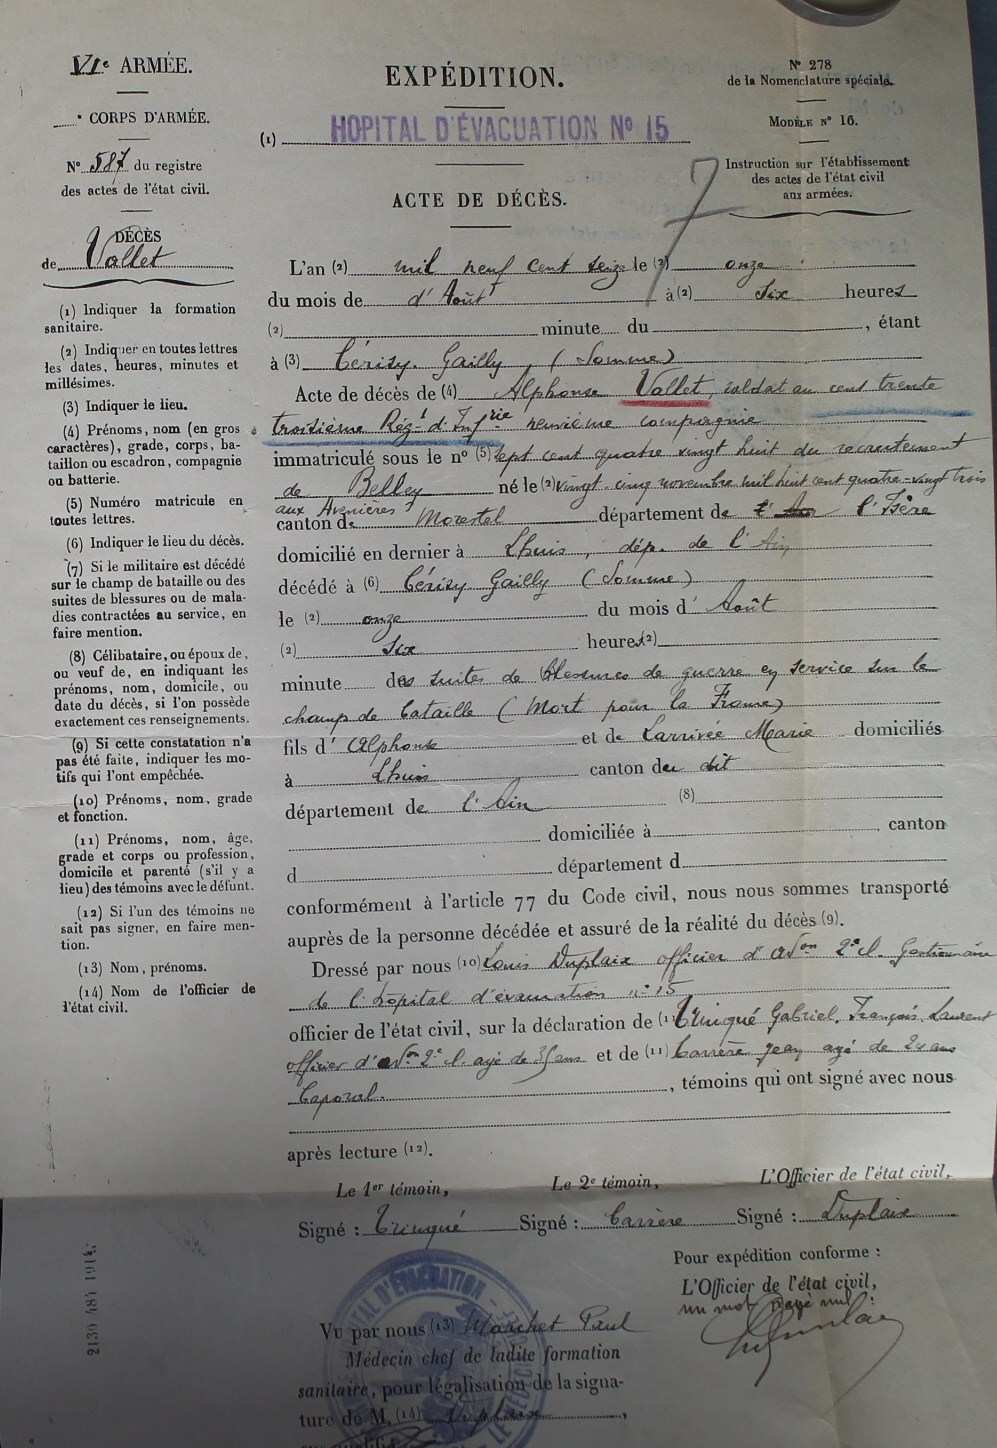 VIe ARMÉE.
CORPS D'ARMÉE.
No 587 du registre
des actes de l'état civil.
DÉCÈS
de Vallet
(1) Indiquer la formation
sanitaire.
(2) Indiquer en toutes lettres
les dates, heures, minutes et
millésimes.
(3) Indiquer le lieu.
(4) Prénoms, nom (en gros
caractères), grade, corps, ba-
taillon ou escadron, compagnie
ou batterie.
(5) Numéro matricule en
toutes lettres.
(6) Indiquer le lieu du décès.
(7) Si le militaire est décédé
sur le champ de bataille ou des
suites de blessures ou de mala-
dies contractées au service, en
faire mention.
(8) Célibataire, ou époux de,
ou veuf de, en indiquant les
prénoms, nom, domicile, ou
date du décès, si l'on possède
exactement ces renseignements.
(9) Si cette constatation n'a
pas été faite, indiquer les mo-
tifs qui l'ont empêchée.
(10) Prénoms, nom, grade
et fonction.
(11) Prénoms, nom, âge,
grade et corps ou profession,
domicile et parenté (s'il y a
lieu) des témoins avec le défunt.
(12) Si l'un des témoins ne
sait pas signer, en faire men-
tion.
(13) Nom, prénoms.
(14) Nom de l'officier de
l'état civil.
2130 484 1914.
EXPÉDITION.
(1) HOPITAL D'ÉVACUATION No 15
ACTE DE DÉCÈS.
No 278
de la Nomenclature spéciale.
MODÈLE No 16.
Instruction sur l'établissement
des actes de l'état civil
aux armées.
7
L'an (2) mil neuf cent seize le (2) onze
du mois de d'Août à (2) six heures
(2) minute du , étant
à (3) Cérisy-Gailly (Somme)
Acte de décès de (4) Alphonse Vallet, soldat au cent trente
troisième Régt d'Infrie neuvième compagnie
immatriculé sous le no (5) sept cent quatre vingt huit du recrutement
de Belley né le (2) vingt-cinq novembre mil huit cent quatre-vingt trois
aux Avenières
canton de Morestel département de l'Isère
domicilié en dernier à Lhuis, dép. de l'Ain
décédé à (6) Cérisy Gailly (Somme)
le (2) onze du mois d'Août
(2) six heures (2)
minute des suites de blessures de guerre en service sur le
champ de bataille (Mort pour la France)
fils d'Alphonse et de Larrivée Marie domiciliés
à Lhuis canton du dit
département de l'Ain (8)
domiciliée à , canton
d département d
conformément à l'article 77 du Code civil, nous nous sommes transporté
auprès de la personne décédée et assuré de la réalité du décès (9).
Dressé par nous (10) Louis Duplaix officier d'Adon 2e cl. Gestionnaire
de l'hôpital d'évacuation no 15
officier de l'état civil, sur la déclaration de (11) Trinqué Gabriel, François, Laurent
officier d'Adon 2e cl. agé de 35 ans et de (11) Carrère Jean agé de 24 ans
Caporal. , témoins qui ont signé avec nous
après lecture (12).
Le 1er témoin, Le 2e témoin, L'Officier de l'état civil,
Signé : Trinqué Signé : Carrère Signé : Duplaix
Pour expédition conforme :
L'Officier de l'état civil,
un mot rayé nul :
HOPITAL D'ÉVACUATION
Vu par nous (13) Marchet Paul
Médecin chef de ladite formation
sanitaire, pour légalisation de la signa-
ture de M. (14) Duplaix ,